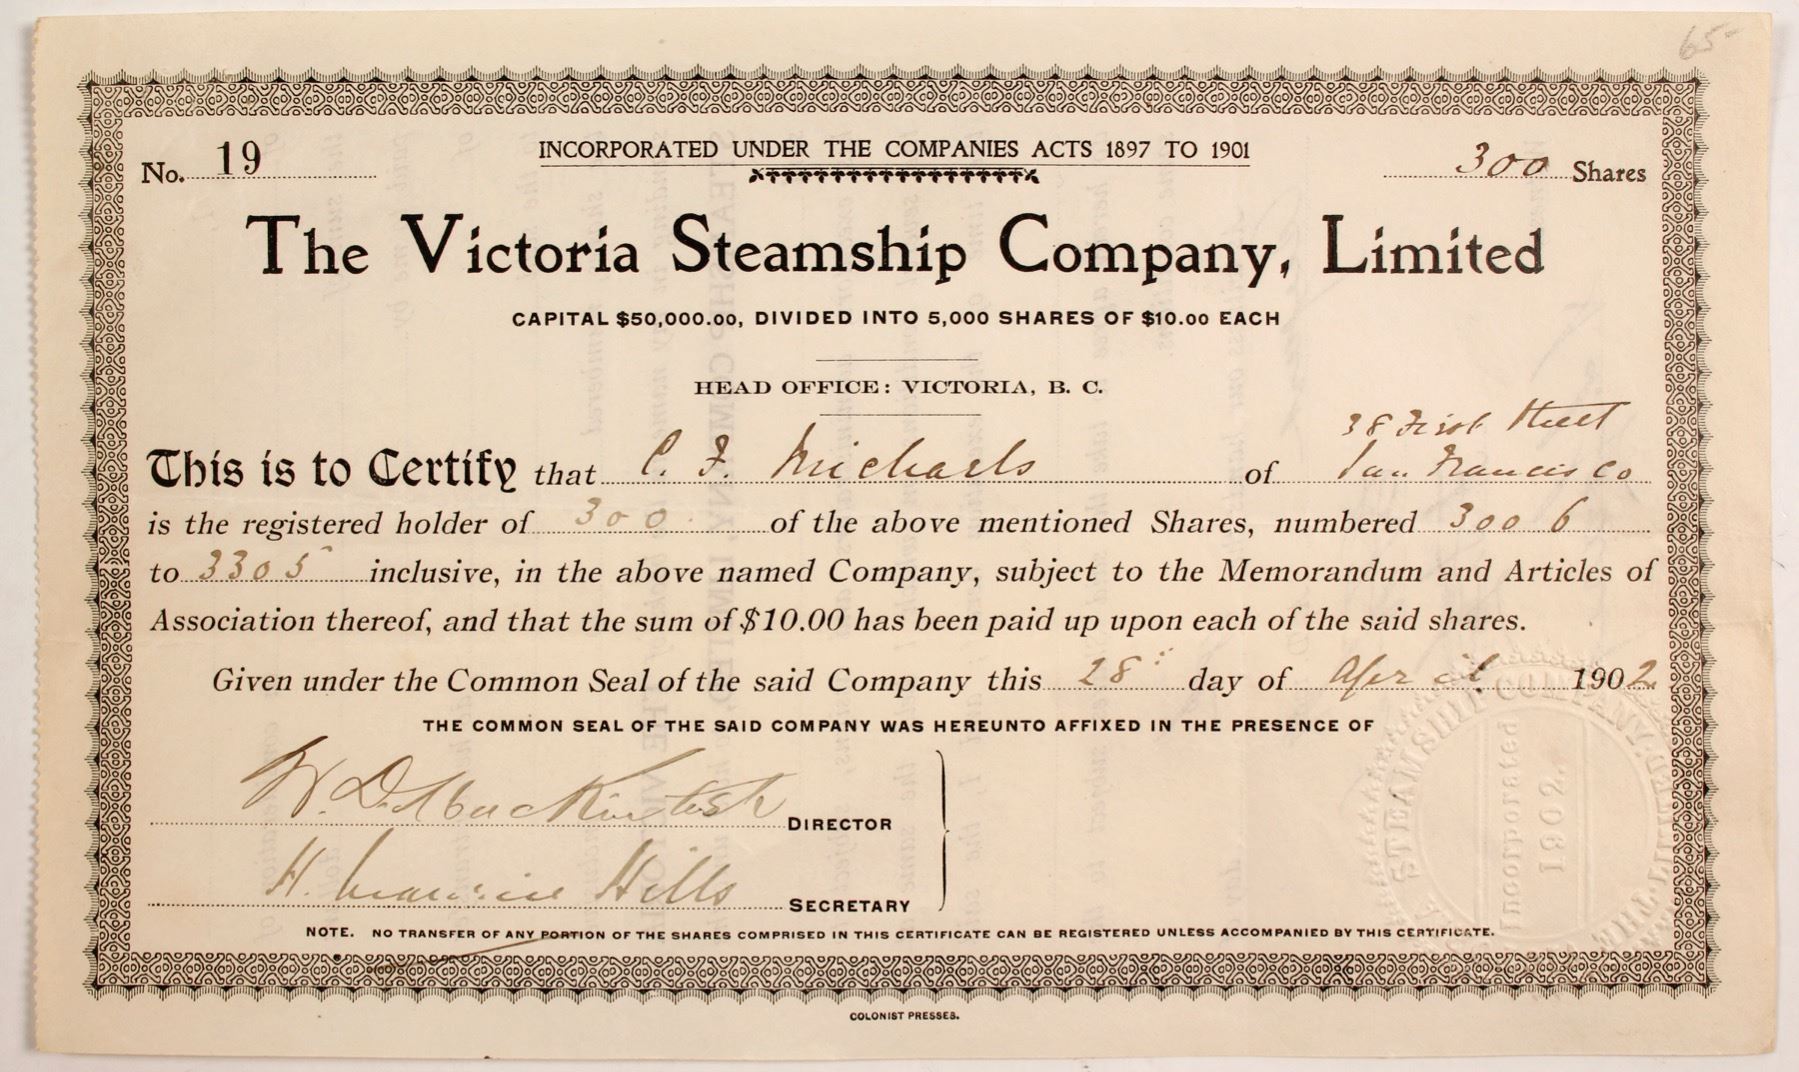 65-
No. 19
INCORPORATED UNDER THE COMPANIES ACTS 1897 TO 1901
300 Shares
The Victoria Steamship Company, Limited
CAPITAL $50,000.00, DIVIDED INTO 5,000 SHARES OF $10.00 EACH
HEAD OFFICE: VICTORIA, B. C.
38 First Street
This is to Certify that C. F. Michaels of San Francisco
is the registered holder of 300 of the above mentioned Shares, numbered 3006
to 3305 inclusive, in the above named Company, subject to the Memorandum and Articles of
Association thereof, and that the sum of $10.00 has been paid up upon each of the said shares.
Given under the Common Seal of the said Company this 28 day of April 1902
THE COMMON SEAL OF THE SAID COMPANY WAS HEREUNTO AFFIXED IN THE PRESENCE OF
DIRECTOR
H. Hills
SECRETARY
STEAMSHIP COMPANY
Incorporated
1902.
NOTE. NO TRANSFER OF ANY PORTION OF THE SHARES COMPRISED IN THIS CERTIFICATE CAN BE REGISTERED UNLESS ACCOMPANIED BY THIS CERTIFICATE.
COLONIST PRESSES.